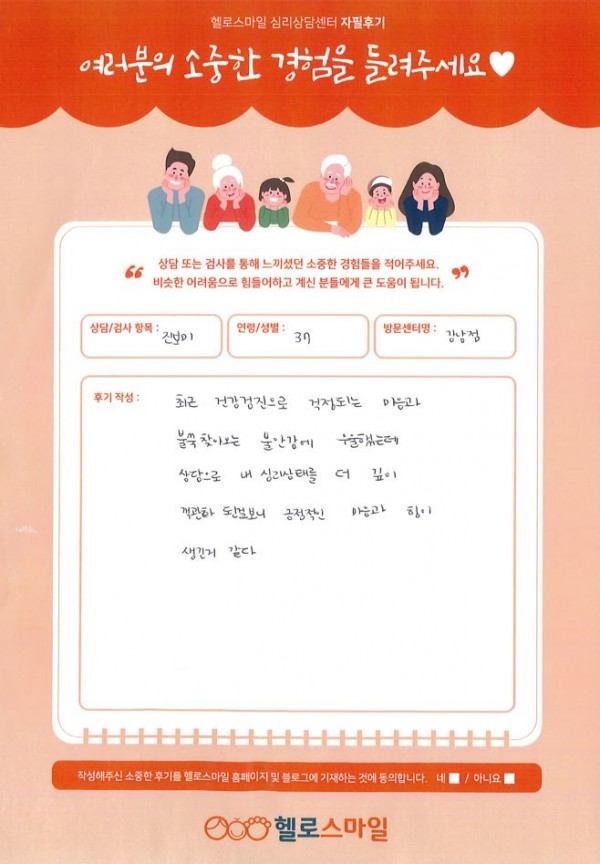 헬로스마일 심리상담센터 자필후기
여러분의 소중한 경험을 들려주세요♥
상담 또는 검사를 통해 느끼셨던 소중한 경험들을 적어주세요.
비슷한 어려움으로 힘들어하고 계신 분들에게 큰 도움이 됩니다.
상담/검사 항목 : 진보미
연령/성별 : 37
방문센터명 : 강남점
후기 작성 :
최근 건강검진으로 걱정되는 마음과
불쑥 찾아오는 불안감에 우울했는데
상담으로 내 심리상태를 더 깊이
객관화 된걸보니 긍정적인 마음과 힘이
생긴거 같다
작성해주신 소중한 후기를 헬로스마일 홈페이지 및 블로그에 기재하는 것에 동의합니다. 네 ■ / 아니요 ■
헬로스마일